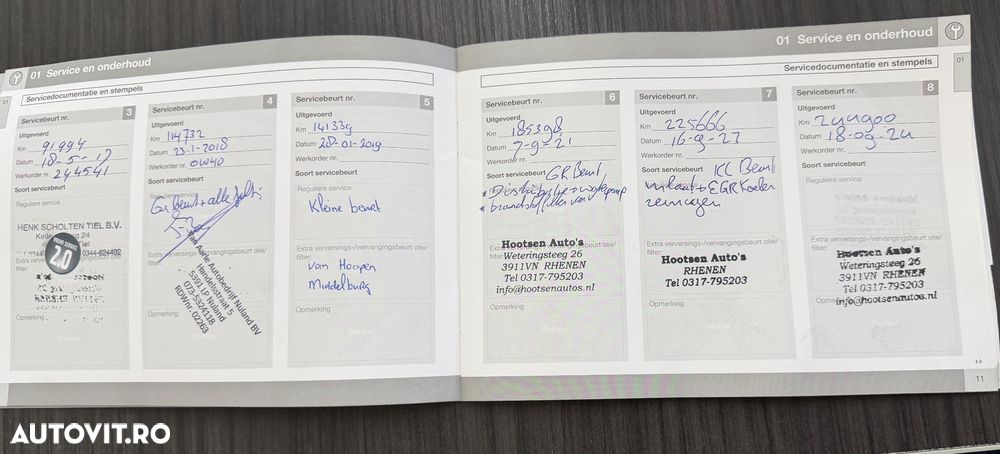 01 Service en onderhoud
Servicedocumentatie en stempels
Servicebeurt nr. 3
Uitgevoerd
Km 91994
Datum 18-5-17
Werkorder nr. 244541
Soort servicebeurt
Reguliere service
HENK SCHOLTEN TIEL B.V.
24
Tiel
0344-624402
VOLVO SERVICE
2.0
Extra verversings-/vervangingsbeurt olie/
filter:
Opmerking
Stempel
Servicebeurt nr. 4
Uitgevoerd
Km 114732
Datum 23-1-2018
Werkorder nr. 0W40
Soort servicebeurt
Gr beurt + alle
Van Aarle Autobedrijf Nuland BV
5391 LP Nuland
073-5324118
RDWnr. 02263
Extra verversings-/vervangingsbeurt olie/
filter:
Opmerking
Servicebeurt nr. 5
Uitgevoerd
Km 141339
Datum 28-01-2019
Werkorder nr.
Soort servicebeurt
Reguliere service
Kleine beurt
Extra verversings-/vervangingsbeurt olie/
filter:
van Hoopen
Middelburg
Opmerking
Stempel
01 Service en onderhoud
Servicedocumentatie en stempels
01
Servicebeurt nr. 6
Uitgevoerd
Km 185398
Datum 7-9-21
Werkorder nr.
Soort servicebeurt
GR Beurt
* Distributie + waterpomp
* brandstoffilter
Hootsen Auto's
Weteringsteeg 26
3911VN RHENEN
Tel 0317-795203
info@hootsenautos.nl
Opmerking
Stempel
Servicebeurt nr. 7
Uitgevoerd
Km 225666
Datum 16-9-23
Werkorder nr.
Soort servicebeurt
KL Beurt
inlaat + EGR Koeler
reinigen
Extra verversings-/vervangingsbeurt olie/
filter:
Hootsen Auto's
RHENEN
Tel 0317-795203
Opmerking
Stempel
Servicebeurt nr. 8
Uitgevoerd
Km 244900
Datum 18-09-24
Werkorder nr.
Soort servicebeurt
Reguliere service
Extra verversings-/vervangingsbeurt olie/
filter:
Hootsen Auto's
Weteringsteeg 26
3911VN RHENEN
Tel 0317-795203
info@hootsenautos.nl
Opmerking
Stempel
11
AUTOVIT.RO